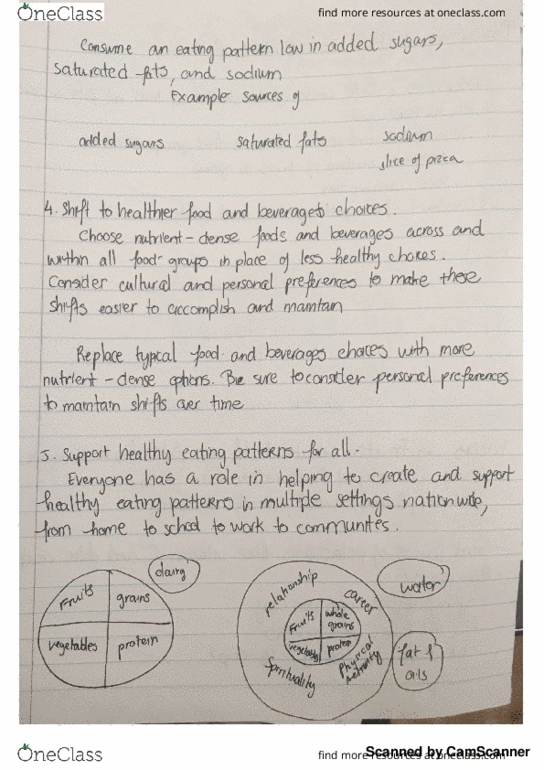 OneClass
find more resources at oneclass.com
Consume an eating pattern low in added sugars,
saturated fats, and sodium
Example sources of
added sugars saturated fats sodium
slice of pizza
4. Shift to healthier food and beverages choices.
Choose nutrient-dense foods and beverages across and
within all food groups in place of less healthy choices.
Consider cultural and personal preferences to make these
shifts easier to accomplish and maintain
Replace typical food and beverages choices with more
nutrient-dense options. Be sure to consider personal preferences
to maintain shifts over time
5. Support healthy eating patterns for all.
Everyone has a role in helping to create and support
healthy eating patterns in multiple settings nationwide,
from home to school to work to communites.
dairy
Fruits grains
vegetables protein
relationship
career
water
Fruits whole
grains
vegetables protein
Physical
Activity
Spirituality
fat &
oils
OneClass
find more resources at oneclass.com
Scanned by CamScanner